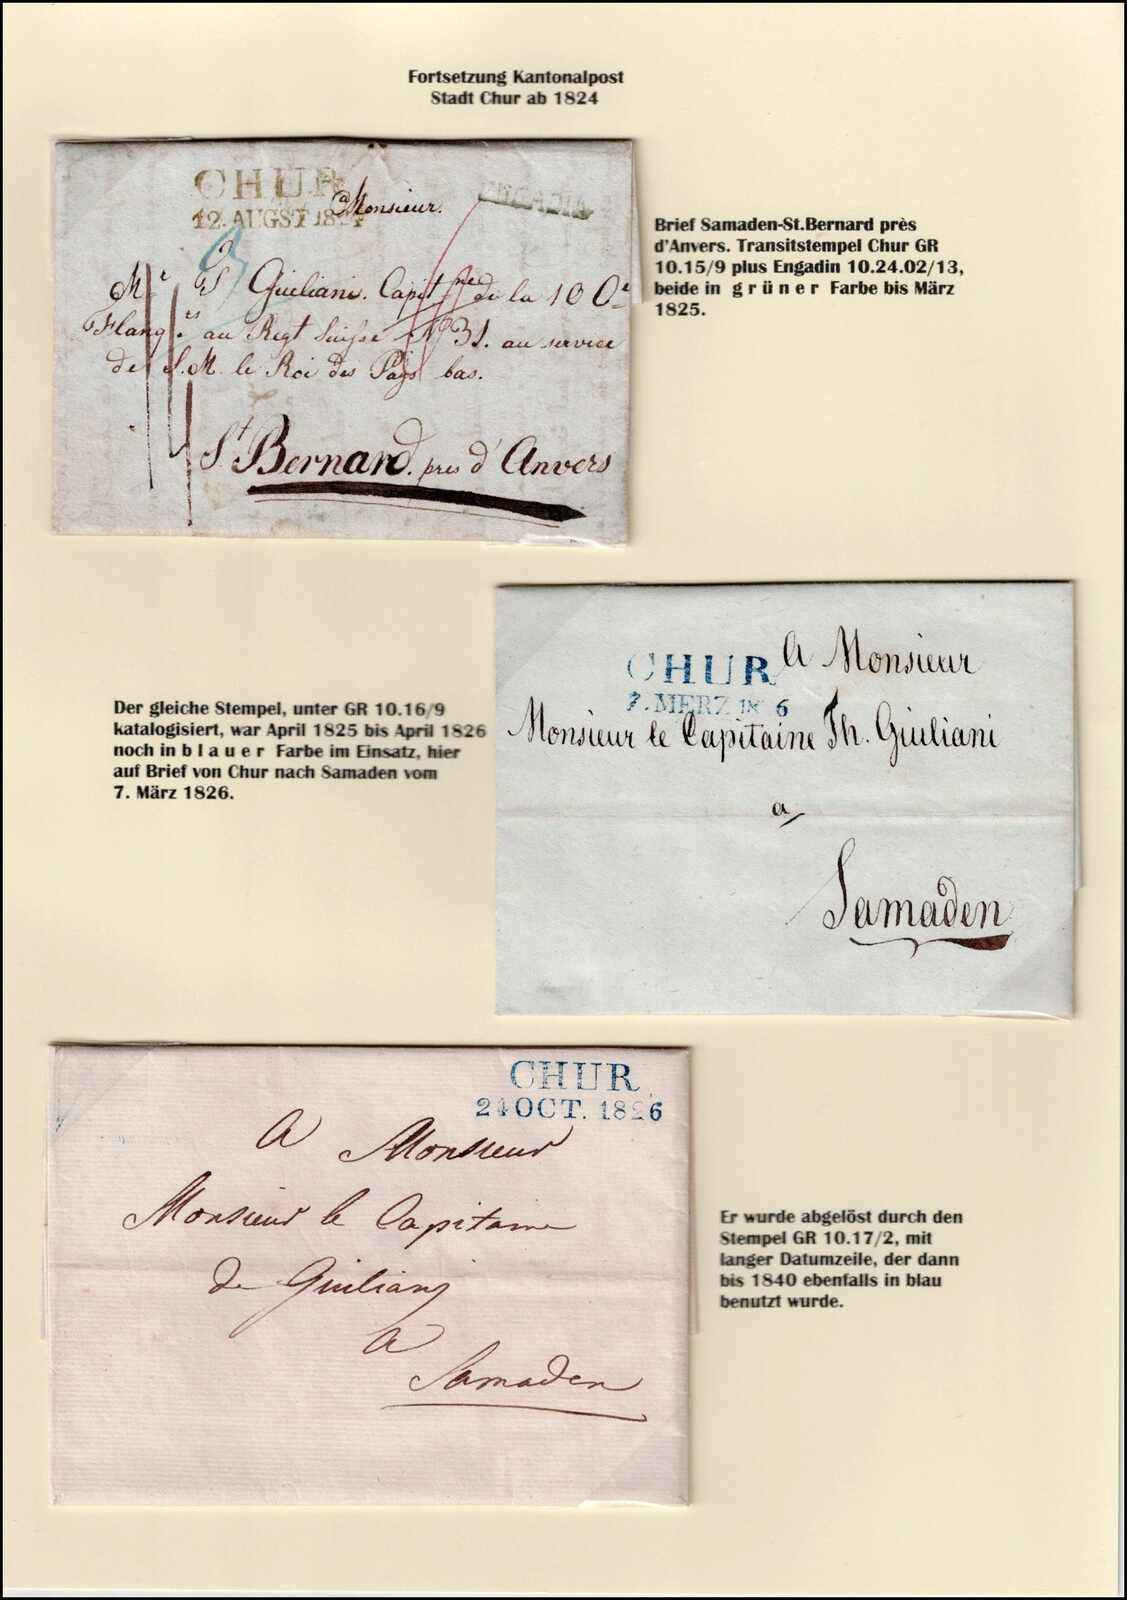 Fortsetzung Kantonalpost
Stadt Chur ab 1824
CHUR
12. AUGST 1824
ENGADIN
a Monsieur.
Mr. S Giuliani. Capitne de la 10 Ce
Flanqes au Regt Suisse No 31. au service
de S.M. le Roi des Pays bas.
St Bernard. près d'Anvers
Brief Samaden-St.Bernard près
d'Anvers. Transitstempel Chur GR
10.15/9 plus Engadin 10.24.02/13,
beide in g r ü n e r Farbe bis März
1825.
CHUR
7. MERZ 1826
A Monsieur
Monsieur le Capitaine Th. Giuliani
a
Samaden
Der gleiche Stempel, unter GR 10.16/9
katalogisiert, war April 1825 bis April 1826
noch in b l a u e r Farbe im Einsatz, hier
auf Brief von Chur nach Samaden vom
7. März 1826.
CHUR
24 OCT. 1826
A Monsieur
Monsieur le Capitaine
de Giuliani
A
Samaden
Er wurde abgelöst durch den
Stempel GR 10.17/2, mit
langer Datumzeile, der dann
bis 1840 ebenfalls in blau
benutzt wurde.